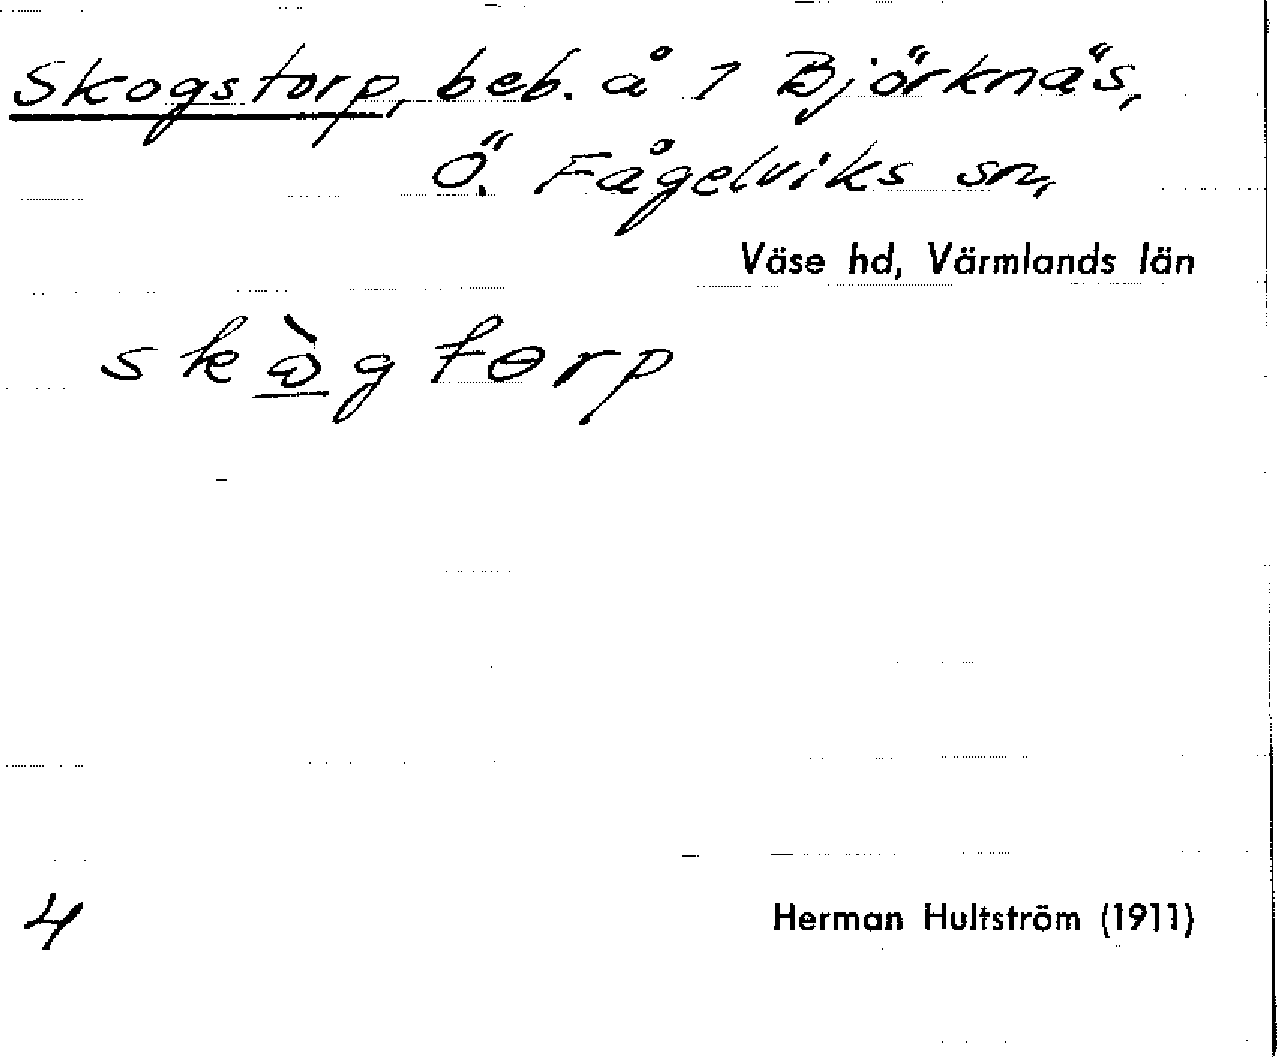 Skogstorp, beb. å 1 Björknäs,
Ö. Fågelviks sn,
Väse hd, Värmlands län
skògtɵrp
4
Herman Hultström (1911)